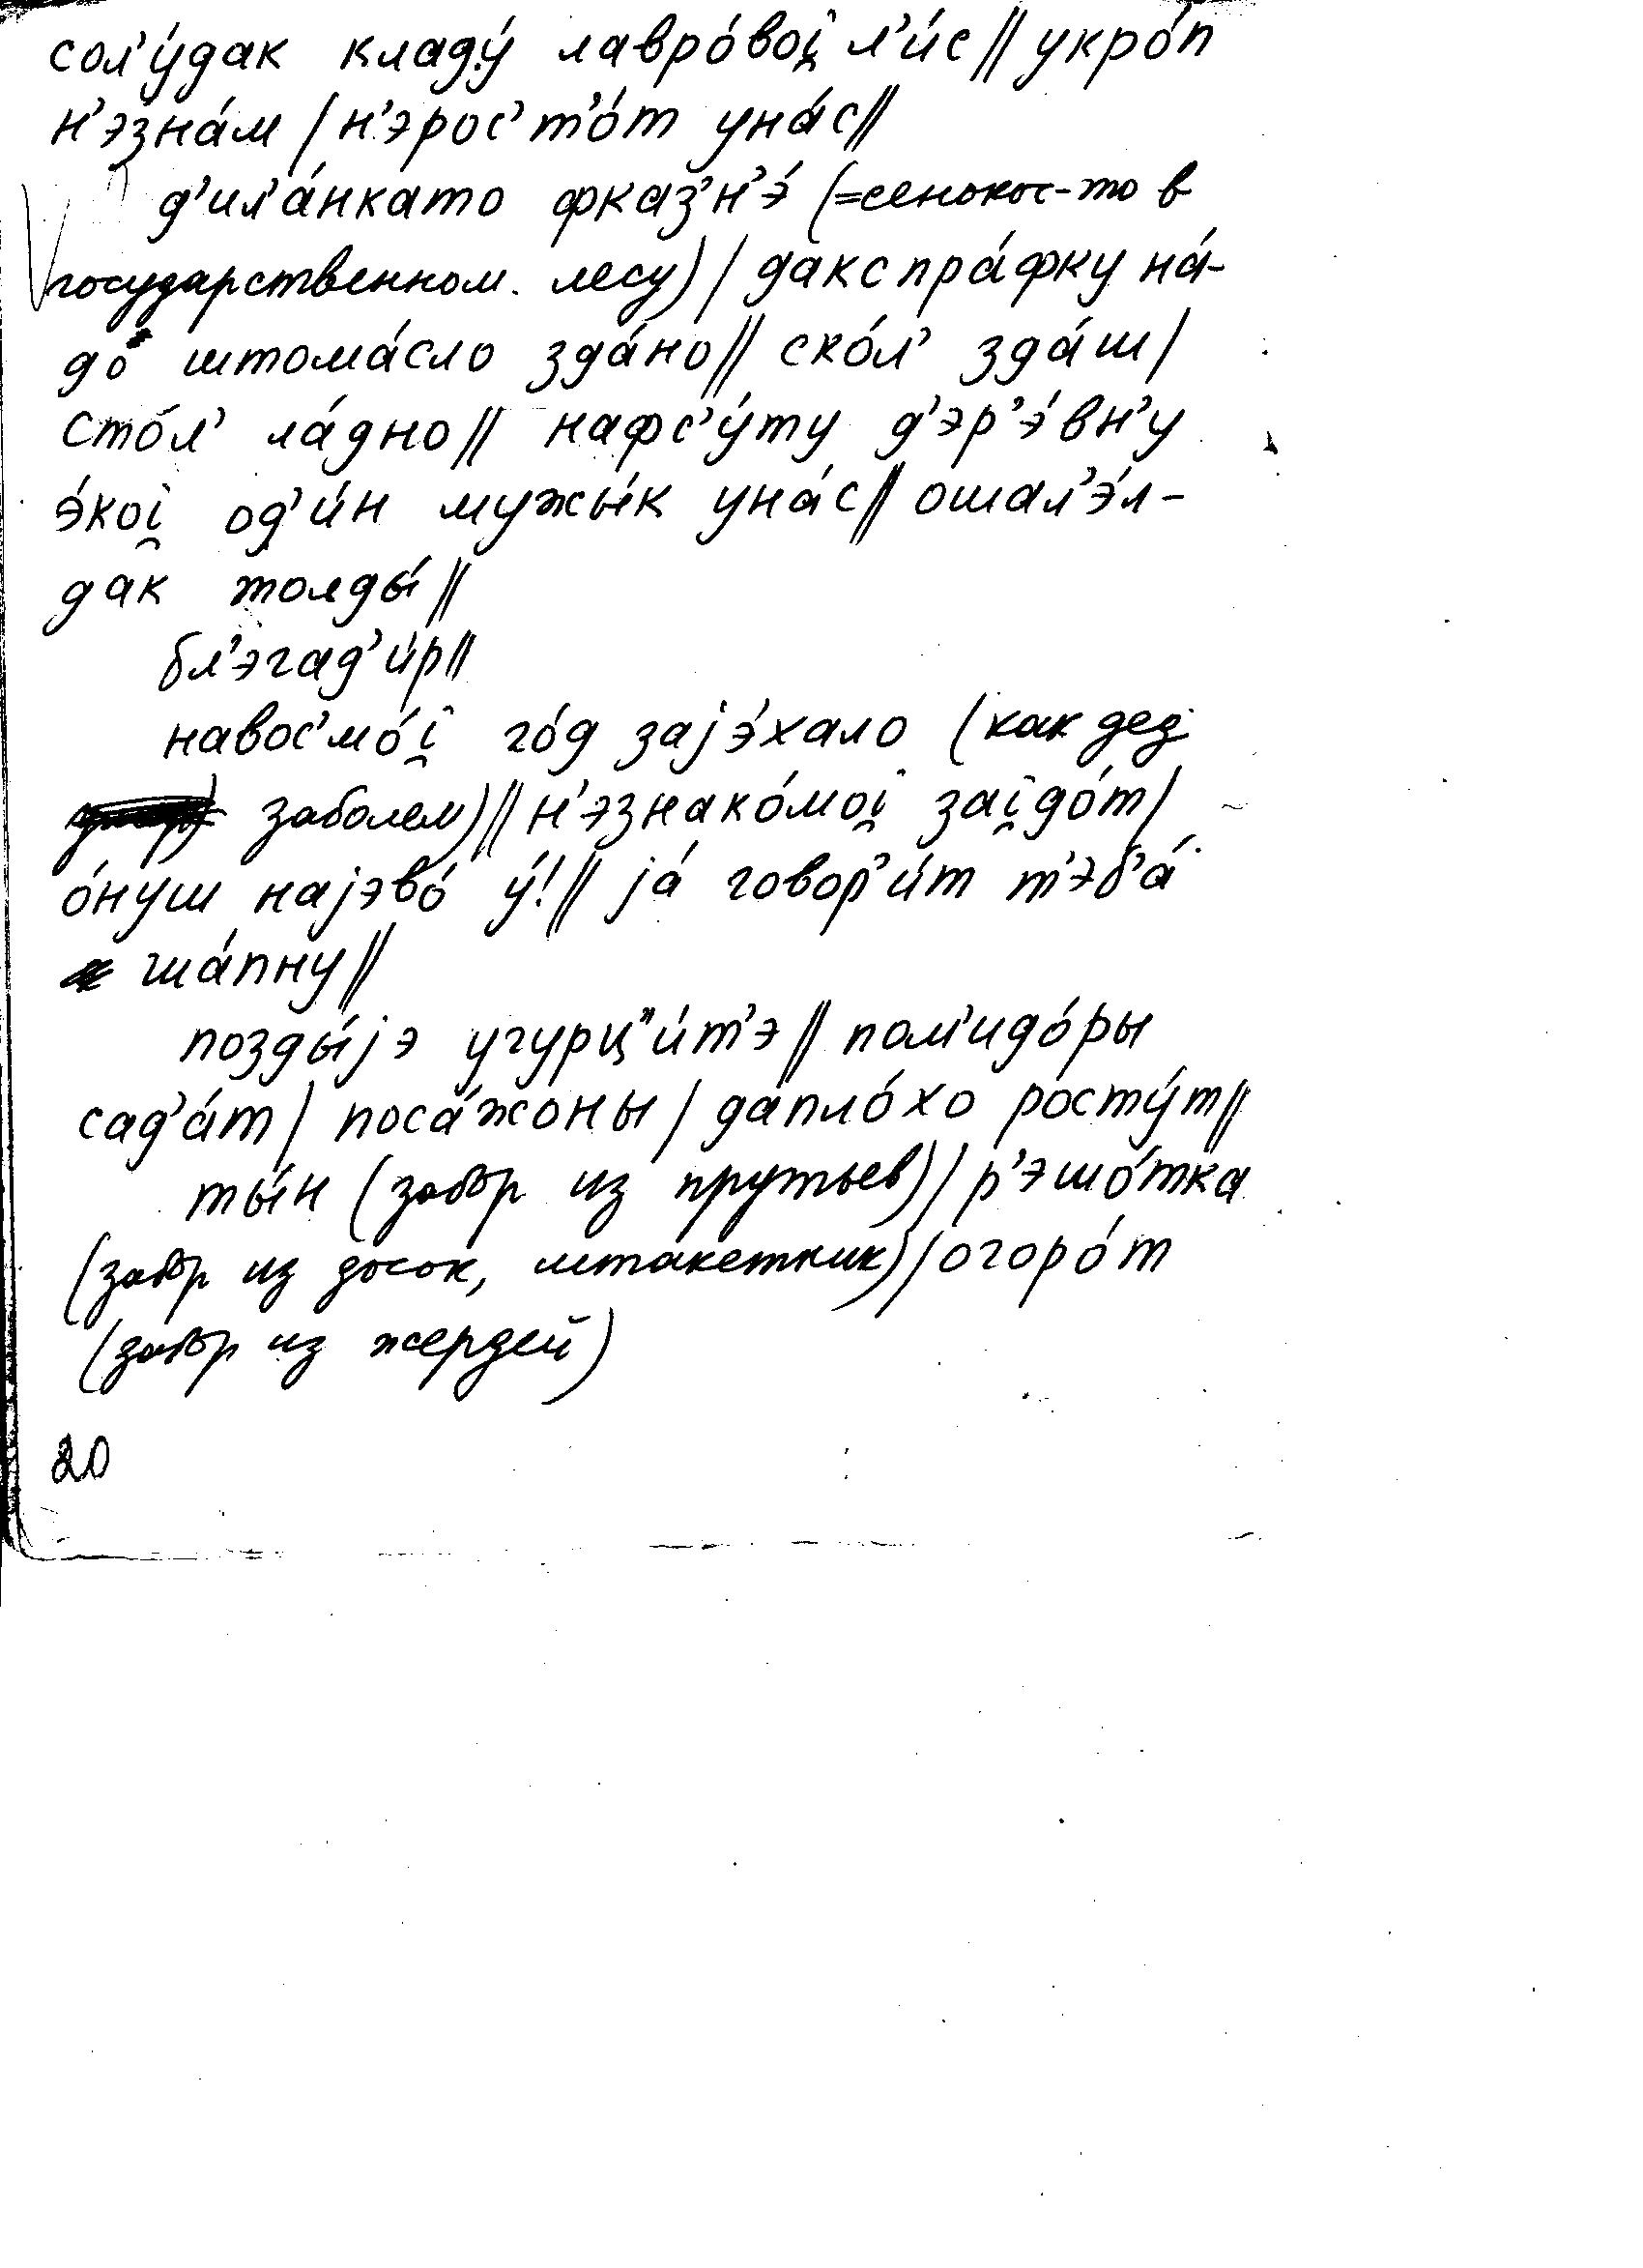 сол'у́дак кладу́ лавро́воi̯ л'и́с // укро́п
н'эзна́м / н'эрос'т'о́т уна́с //
д'ил'а́нката фказ'н'э́ (=сенокос-то в
государственном. лесу) / дакспра́фку на́-
до штома́сло зда́но // ско́л' зда́ш /
сто́л' ла́дно // нафс'у́ту д'эр'э́вн'у
э́коi̯ од'и́н мужы́к уна́с // ошал'э́л-
дак жолды́ //
бл'эгад'и́р //
навос'мо́i̯ го́д заjэ́хало (как дед
заболел) // н'эзнако́моi̯ заi̯до́т /
о́нуш наjэво́ у́! // jа́ говор'и́т т'эб'а́
ша́пну //
позды́jэ угурц"и́т'э // пом'идо́ры
сад'а́т / поса́жоны / дапло́хо росту́т //
ты́н (забор из прутьев) / р'эшо́тка
(забор из досок, штакетник) / огоро́т
(забор из жердей)
20